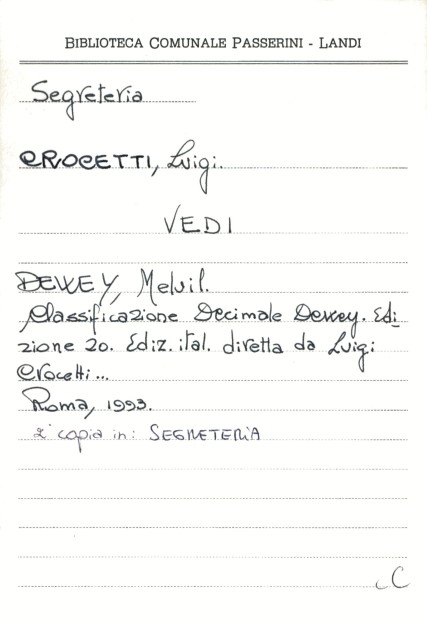 BIBLIOTECA COMUNALE PASSERINI - LANDI
Segreteria
CROCETTI, Luigi.
VEDI
DEWEY, Melvil.
Classificazione Decimale Dewey. Edi
zione 20. Ediz. ital. diretta da Luigi
Crocetti...
Roma, 1993.
2ª copia in: SEGRETERIA